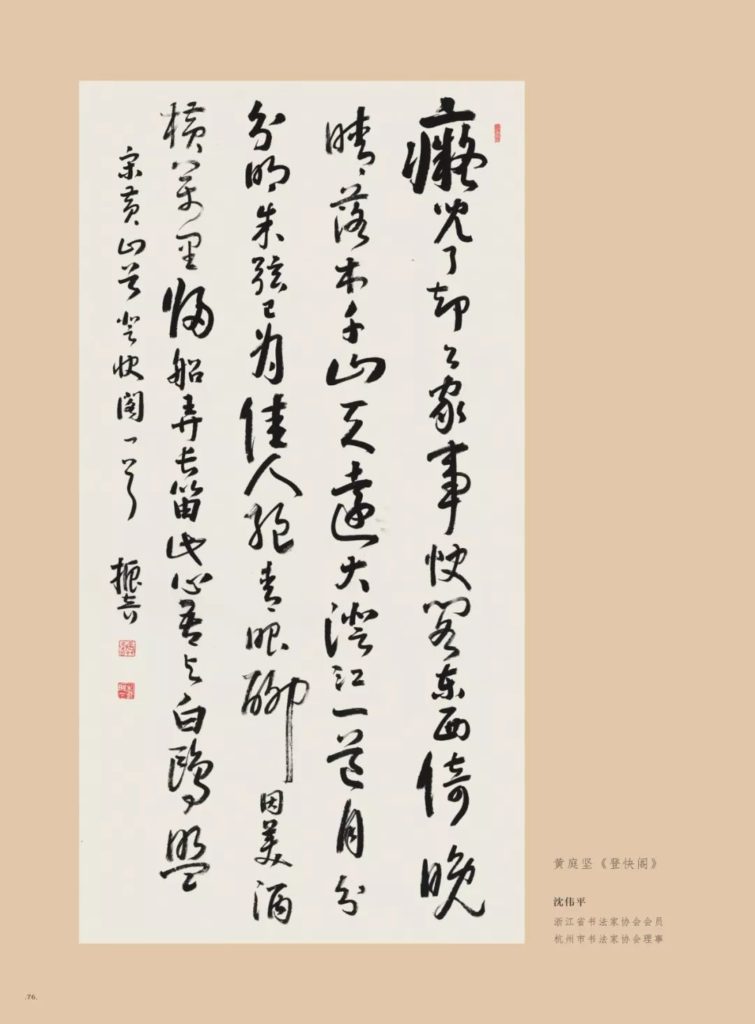 癡兒了却公家事快閣东西倚晚
晴落木千山天遠大澄江一道月分
分明朱弦已为佳人絶青眼聊因美酒
橫万里歸船弄长笛此心吾与白鷗盟
宋黄山谷登快閣一首
黄庭坚《登快阁》
沈伟平
浙江省书法家协会会员
杭州市书法家协会理事
.76.